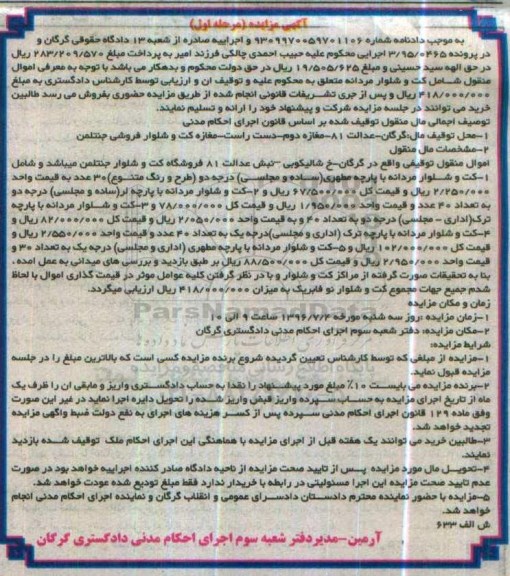 آگهی مزایده (مرحله اول)
به موجب دادنامه شماره ۹۳۰۹۹۷۰۰۵۹۷۰۱۱۰۶ و اجراییه صادره از شعبه ۱۳ دادگاه حقوقی گرگان و
در پرونده ۳/۹۵/۰۴۶۵ اجرایی محکوم علیه حبیب احمدی چالکی فرزند امیر به پرداخت مبلغ ۲۸۳/۲۰۹/۵۷۰ ریال
در حق الهه سید حسینی و مبلغ ۱۹/۵۰۵/۶۲۵ ریال در حق دولت محکوم و بدهکار می باشد با توجه به معرفی اموال
منقول شامل کت و شلوار مردانه متعلق به محکوم علیه و توقیف ان و ارزیابی توسط کارشناس دادگستری به مبلغ
۴۱۸/۰۰۰/۰۰۰ ریال و پس از جری تشریفات قانونی انجام شده از طریق مزایده حضوری بفروش می رسد طالبین
خرید می توانند در جلسه مزایده شرکت و پیشنهاد خود را ارائه و تسلیم نمایند.
توصیف اجمالی مال منقول توقیف شده بر اساس قانون اجرای احکام مدنی
۱-محل توقیف مال:گرگان-عدالت ۸۱-مغازه دوم-دست راست-مغازه کت و شلوار فروشی جنتلمن
۲-مشخصات مال منقول
اموال منقول توقیفی واقع در گرگان-خ شالیکوبی -نبش عدالت ۸۱ فروشگاه کت و شلوار جنتلمن میباشد و شامل
۱-کت و شلوار مردانه با پارچه مطهری(ساده و مجلسی) درجه دو (طرح و رنگ متنوع)۳۰ عدد به قیمت واحد
۲/۲۵۰/۰۰۰ ریال و قیمت کل ۶۷/۵۰۰/۰۰۰ ریال و ۲-کت و شلوار مردانه با پارچه لر(ساده و مجلسی) درجه دو
به تعداد ۴۰ عدد و قیمت واحد ۱/۹۵۰/۰۰۰ ریال و قیمت کل ۷۸/۰۰۰/۰۰۰ و ۳-کت و شلوار مردانه با پارچه
ترک(اداری - مجلسی) درجه دو به تعداد ۴۰ و به قیمت واحد ۲/۰۵۰/۰۰۰ ریال و قیمت کل ۸۲/۰۰۰/۰۰۰ ریال و
۴-کت و شلوار مردانه با پارچه ترک (اداری و مجلسی)درجه یک به تعداد ۴۰ عدد و قیمت واحد ۲/۵۵۰/۰۰۰ ریال و
قیمت کل ۱۰۲/۰۰۰/۰۰۰ ریال و ۵-کت و شلوار مردانه با پارچه مطهری (اداری و مجلسی) درجه یک به تعداد ۳۰ و
قیمت واحد ۲/۹۵۰/۰۰۰ ریال و قیمت کل ۸۸/۵۰۰/۰۰۰ ریال بر طبق بازدید و بررسی های میدانی به عمل امده ،
بنا به تحقیقات صورت گرفته از مراکز کت و شلوار و با در نظر گرفتن کلیه عوامل موثر در قیمت گذاری اموال با لحاظ
شدم جمیع جهات مجموع کت و شلوار نو فابریک به میزان ۴۱۸/۰۰۰/۰۰۰ ریال ارزیابی میگردد.
زمان و مکان مزایده
۱-زمان مزایده: روز سه شنبه مورخه ۱۳۹۷/۷/۳ ساعت ۹ الی ۱۰
۲-مکان مزایده: دفتر شعبه سوم اجرای احکام مدنی دادگستری گرگان
شرایط مزایده:
۱-مزایده از مبلغی که توسط کارشناس تعیین گردیده شروع برنده مزایده کسی است که بالاترین مبلغ را در جلسه
مزایده قبول نماید.
۲-برنده مزایده می بایست ۱۰٪ مبلغ مورد پیشنهاد را نقدا به حساب دادگستری واریز و مابقی ان را ظرف یک
ماه از تاریخ اجرای مزایده به حساب سپرده واریز قبض واریز شده را تحویل دایره اجرا نماید در غیر این صورت
وفق ماده ۱۲۹ قانون اجرای احکام مدنی سپرده پس از کسر هزینه های اجرای به نفع دولت ضبط واگهی مزایده
تجدید خواهد شد.
۳-طالبین خرید می توانند یک هفته قبل از اجرای مزایده با هماهنگی این اجرای احکام ملک توقیف شده بازدید
نمایند.
۴-تحویل مال مورد مزایده پس از تایید صحت مزایده از ناحیه دادگاه صادر کننده اجراییه خواهد بود در صورت
عدم تایید صحت مزایده این اجرا مسئولیتی در رابطه با خریدار ندارد فقط مبلغ تودیع شده عودت خواهد شد.
۵-مزایده با حضور نماینده محترم دادستان دادسرای عمومی و انقلاب گرگان و نماینده اجرای احکام مدنی انجام
خواهد شد.
ش الف ۶۳۳
آرمین-مدیردفتر شعبه سوم اجرای احکام مدنی دادگستری گرگان